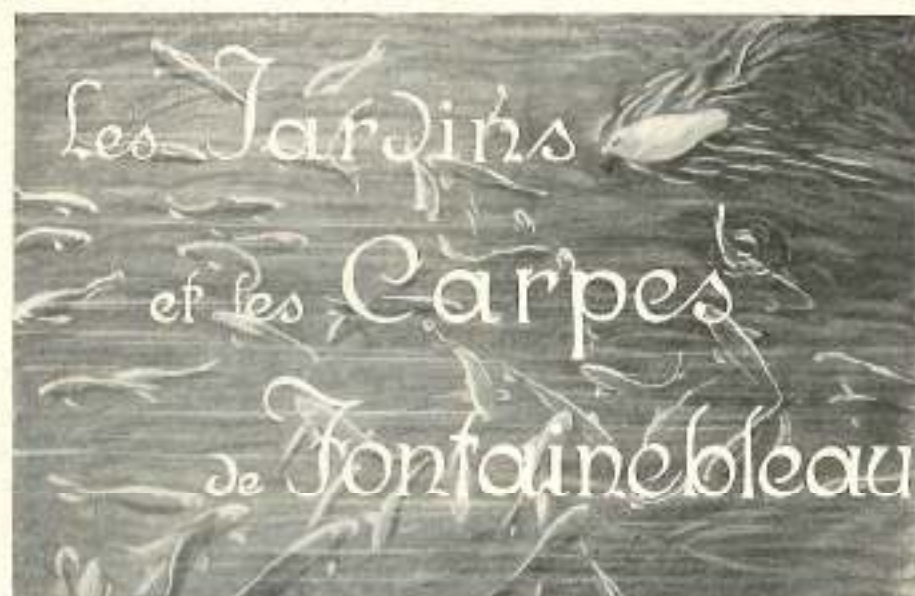 Les Jardins
et les Carpes
de Fontainebleau